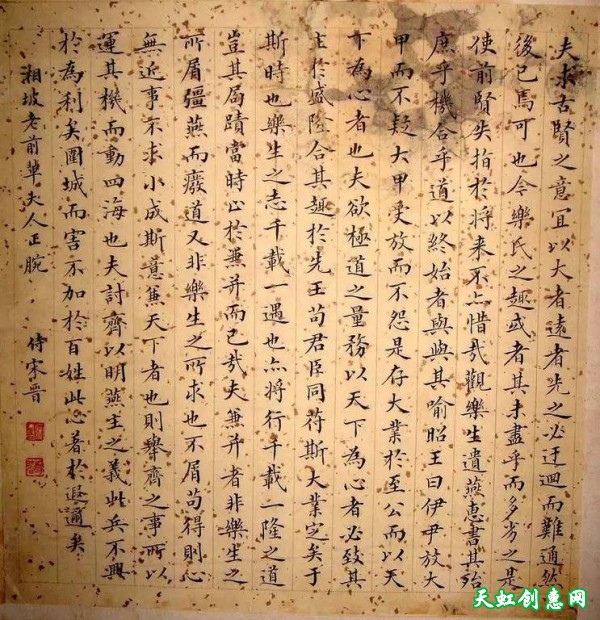 夫求古賢之意宜以大者遠者先之必迂迴而難通然
後已焉可也今樂氏之趣或者其未盡乎而多劣之是
使前賢失指於将来不亦惜哉觀樂生遺燕惠書其殆
庶乎機合乎道以終始者與與其喻昭王曰伊尹放大
甲而不疑大甲受放而不怨是存大業於至公而以天
下為心者也夫欲極道之量務以天下為心者必致其
主於盛隆合其趣於先王苟君臣同符斯大業定矣于
斯時也樂生之志千載一遇也亦將行千載一隆之道
豈其局蹟當時止於兼并而已哉夫兼并者非樂生之
所屑彊燕而廢道又非樂生之所求也不屑苟得則心
無近事不求小成斯意兼天下者也則舉齊之事所以
運其機而動四海也夫討齊以明燕主之義此兵不興
於為利矣圍城而害不加於百姓此心著於遐邇矣
湘坡老前輩夫人正腕
侍宋晋
天虹创意网